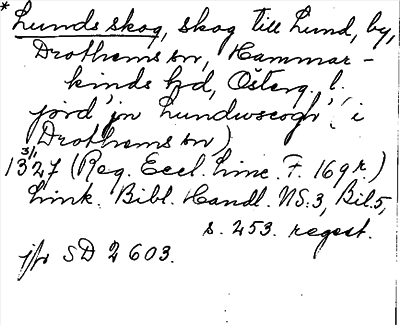 * Lunds skog, skog till Lund, by,
Drothems sn, Hammar-
kinds hd, Österg. l.
jord 'jn Lundwscogh' (i
Drothems sn)
31/1 1327 (Reg. Eccl. Linc. F. 169 r.)
Link. Bibl. Handl. NS:3, Bil. 5,
s. 253. regest.
jfr SD 2603.